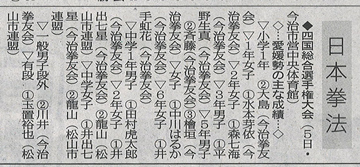 日本拳法
◆四国総合選手権大会（5日・
今治市営中央体育館）
◇…愛媛勢の主な成績…◇
▽小学1年　②大島（今治拳友
会）▽1年女子　①水本芽依（今
治拳友会）▽2年女子　①森七海
（今治拳友会）▽3年男子　①平
野壮真（今治拳友会）▽5年男子
②斉藤（今治拳友会）③曽垣（今
治拳友会）▽女子　①中川はるか
（今治拳友会）▽6年女子　①井
手虹花（今治拳友会）
▽中学1年男子　①田村虎太郎
（今治拳友会）▽2年女子　①井
出七星（今治拳友会）②龍山（松
山市連盟）▽中学女子　①井出七
星（今治拳友会）②龍山（松山市
連盟）
▽一般男子段外　②川井（今治
拳友会）▽有段　①玉置裕也（松
山市連盟）